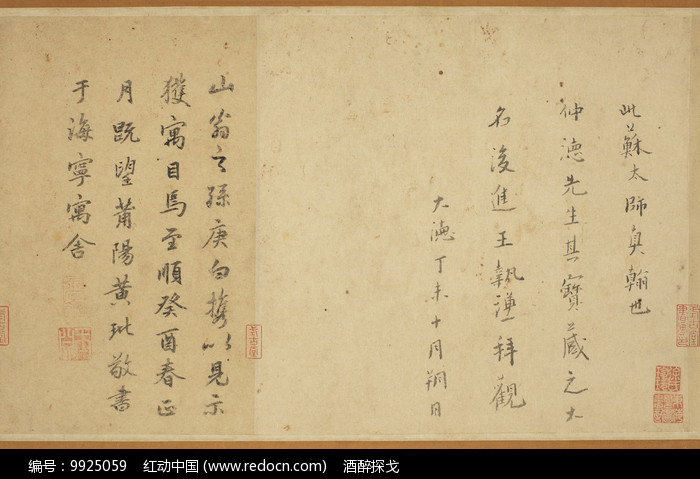 此蘇太師真翰也
仲德先生其寶藏之大
名後進王執謙拜觀
大德丁未十月朔日
山翁之孫庚白携以見示
獲寓目焉至順癸酉春正
月既望莆陽黃玭敬書
于海寧寓舍
编号:9925059 红动中国 (www.redocn.com) 酒醉探戈